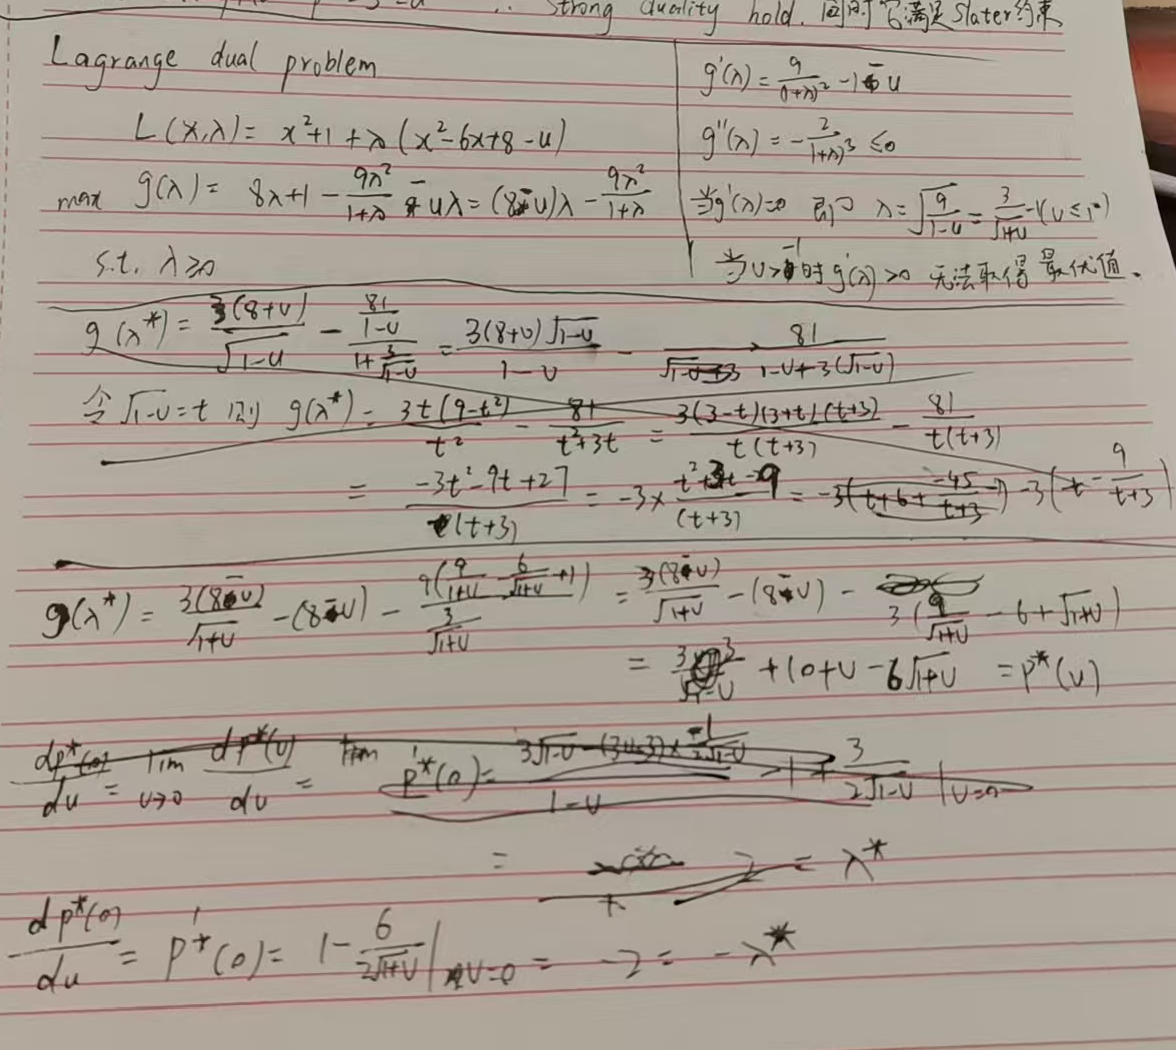 Strong duality hold. 同时它满足Slater约束
Lagrange dual problem
L(x,λ)= x²+1+λ(x²-6x+8-u)
max g(λ)= 8λ+1-9λ²/(1+λ)-uλ=(8-u)λ-9λ²/(1+λ)
s.t. λ≥0
g'(λ)=9/(1+λ)²-1-u
g''(λ)=-2/(1+λ)³≤0
当g'(λ)=0 即 λ=√(9/(1-u))=3/√(1+u)-1(u≤
当u>-1时g'(λ)>0 无法取得最优值.
g(λ*)=3(8+u)/√(1-u)-(81/(1-u))/(1+3/√(1-u))=3(8+u)√(1-u)/(1-u)-81/(1-u+3(√(1-u)))
令√(1-u)=t 则 g(λ*)=3t(9-t²)/t²-81/(t²+3t)=3(3-t)(3+t)(t+3)/(t(t+3))-81/(t(t+3))
=(-3t²-9t+27)/(t+3)=-3×(t²+3t-9)/(t+3)=-3(t+6+-45/(t+3))-3(t-9/(t+3))
g(λ*)=3(8-u)/√(1+u)-(8-u)-9(9/(1+u)-6/√(1+u)+1)/(3/√(1+u))=3(8-u)/√(1+u)-(8-u)-3(9/√(1+u)-6+√(1+u))
=+10+u-6√(1+u)=p*(u)
dp*(0)/du=lim u→0 dp*(u)/du=lim p*'(0)=(3√(1-u)-(3u-3)×-1/(2√(1-u)))/(1-u) -1+3/(2√(1-u))|u=0
= 2=λ*
dp*(0)/du=p*'(0)=1-6/(2√(1+u))|u=0=-2=-λ*